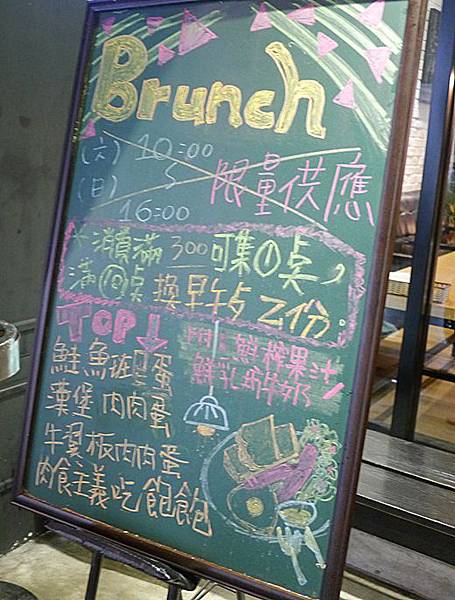 Brunch
(六) 10:00
(日) 〜
16:00
限量供應
*消費滿300可集①点,
滿⑩点換早午乡乙份。
TOP↓
鮭魚班尼蛋
漢堡肉肉蛋
牛翼板肉肉蛋
肉食主義吃飽飽
附:鮮榨果汁
鮮乳